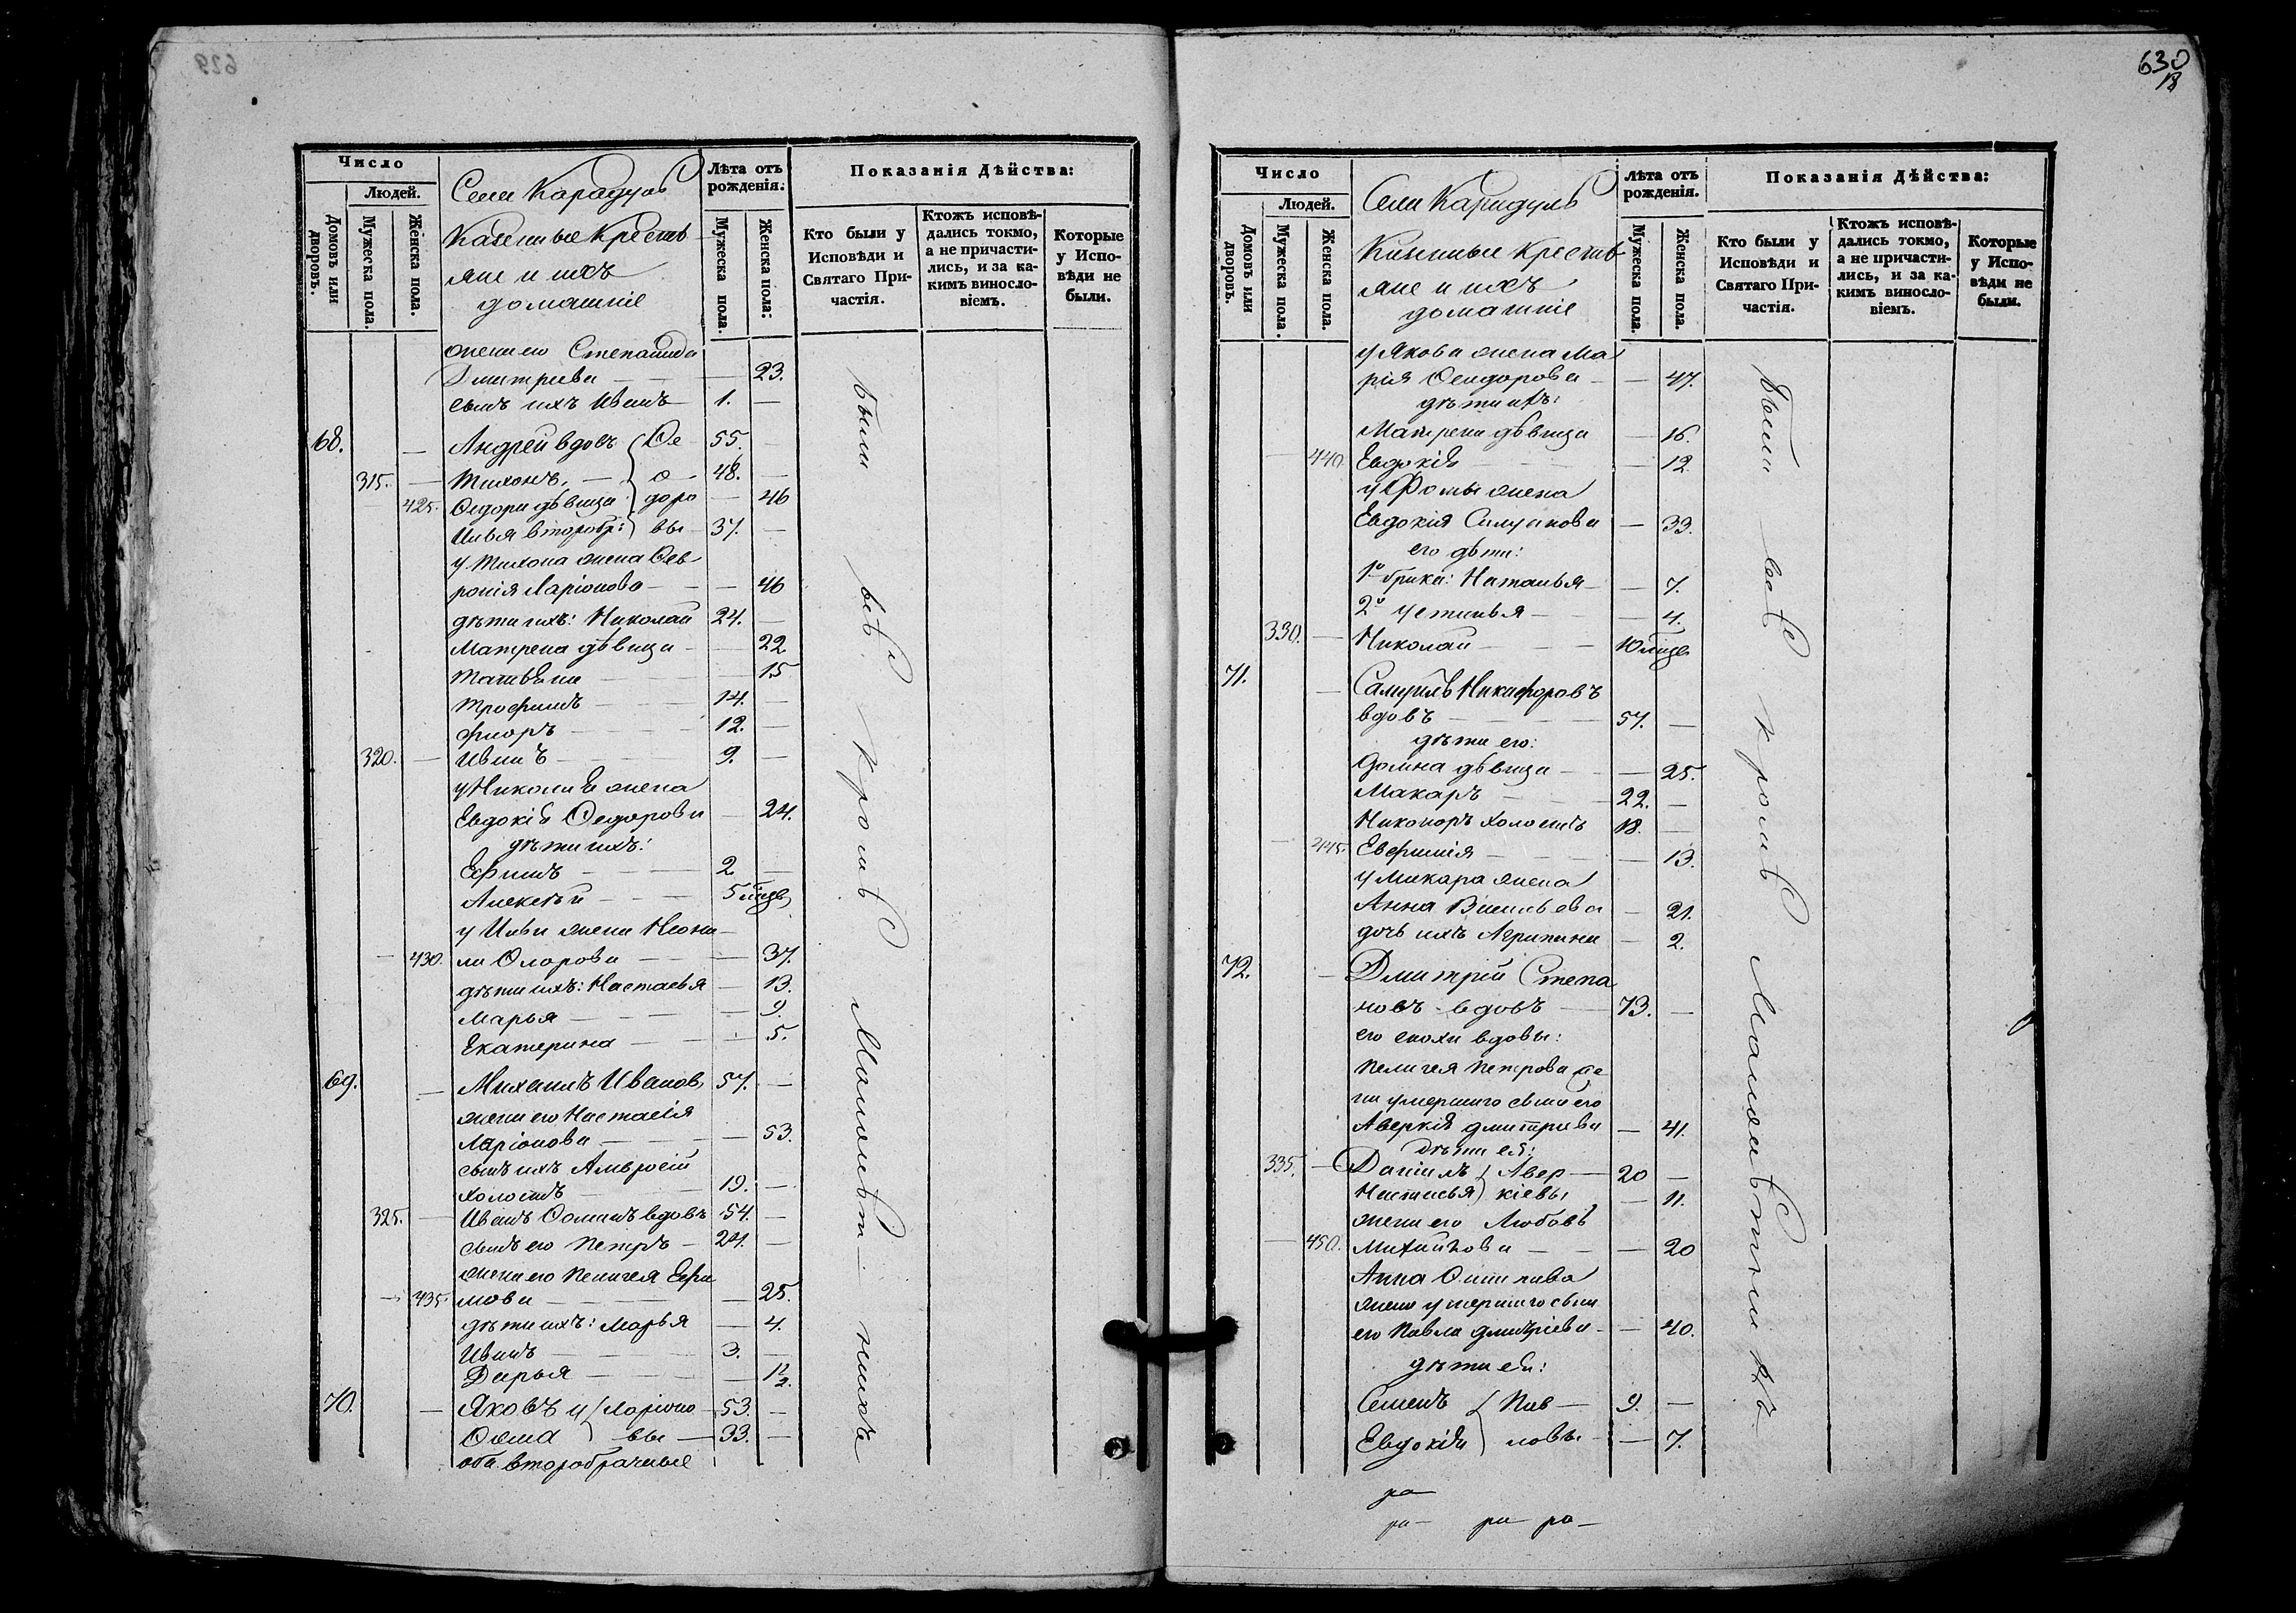 629
Число
Людей.
Домовъ или дворовъ.
Мужеска пола.
Женска пола.
Села Карадуль
Казенные крестья
яне и ихъ
домашніе
Лѣта отъ рожденія.
Мужеска пола.
Женска пола:
Показанія Дѣйства:
Кто были у Исповѣди и Святаго Причастія.
Ктожъ исповѣдались токмо, а не причастились, и за какимъ винословіемъ.
Которые у Исповѣди не были.
жена его Степанида
Дмитріева — — 23.
сынъ ихъ Иванъ 1. —
68. — Андрей вдовъ Ѳе 55. —
315. — Тихонъ, — о 48. —
— 425. Ѳедора дѣвица доро — 46
Илья второбр: вы 37. —
у Тихона жена Фев
ронія Ларіонова — — 46
дѣти ихъ: Николай 24. —
Матрена дѣвица — — 22
Татьяна — — 15
Трофимъ — 14. —
Флоръ — 12. —
320. — Иванъ — 9. —
у Николая жена
Евдокія Ѳедорова — 24.
дѣти ихъ:
Ефимъ — 2 —
Алексѣй — 5 мѣцв
у Ильи жена Неони
— 430. ла Ѳлорова — — 37.
дѣти ихъ: Настасья — 13.
Марья — — 9.
Екатерина — — 5.
69. — Михаилъ Иванов 57. —
жена его Настасія
Ларіонова — — 53.
сынъ ихъ Амвросій
холостъ — 19. —
325. — Иванъ Ѳоминъ вдовъ 54. —
сынъ его Петръ — 24. —
жена его Пелагея Ефи
— 435. мова — — 25.
дѣти ихъ: Марья — 4.
Иванъ — 3. —
Дарья — — 1/2.
70. — Яковъ и Ларіоно 53. —
Ѳома вы — 33. —
оба второбрачные
были всѣ кромѣ Малолѣт нихъ
630
18
Число
Людей.
Домовъ или дворовъ.
Мужеска пола.
Женска пола.
Села Карадуль
Казенные крестья
яне и ихъ
домашніе
Лѣта отъ рожденія.
Мужеска пола.
Женска пола.
Показанія Дѣйства:
Кто были у Исповѣди и Святаго Причастія.
Ктожъ исповѣдались токмо, а не причастились, и за какимъ винословіемъ.
Которые у Исповѣди не были.
у Якова жена Ма
рія Ѳедорова — — 47.
дѣти ихъ:
Матрена дѣвица — 16.
— 440. Евдокія — — 12.
у Фомы жена
Евдокія Силуанова — 33.
его дѣти:
1го брака: Наталья — — 7.
2го Устинья — — 4.
330. — Николай — 10 мѣцв
71. — Самуилъ Никифоровъ
вдовъ — 57. —
дѣти его:
Домна дѣвица — — 25.
Макаръ — 22. —
Никоноръ холостъ 18. —
— 445. Евфимія — — 13.
у Макара жена
Анна Васильева — 21.
дочь ихъ Агрипина — 2.
72. — Дмитрій Степа
новъ вдовъ — 73. —
его снохи вдовы:
Пелагея Петрова же
на умершаго сына его
Аверкія Дмитріева — 41.
дѣти ея:
335. — Даніилъ Авер — 20 —
Настасья кіевы — 11.
жена его Любовь
— 450. Михайлова — — 20
Анна
жена умершаго сына
его Павла Дмитріева — — 40.
дѣти ея:
Семенъ Пав — 9. —
Евдокія ловы — — 7.
были всѣ кромѣ Малолѣтнихъ
ра
ра — ра — ра —